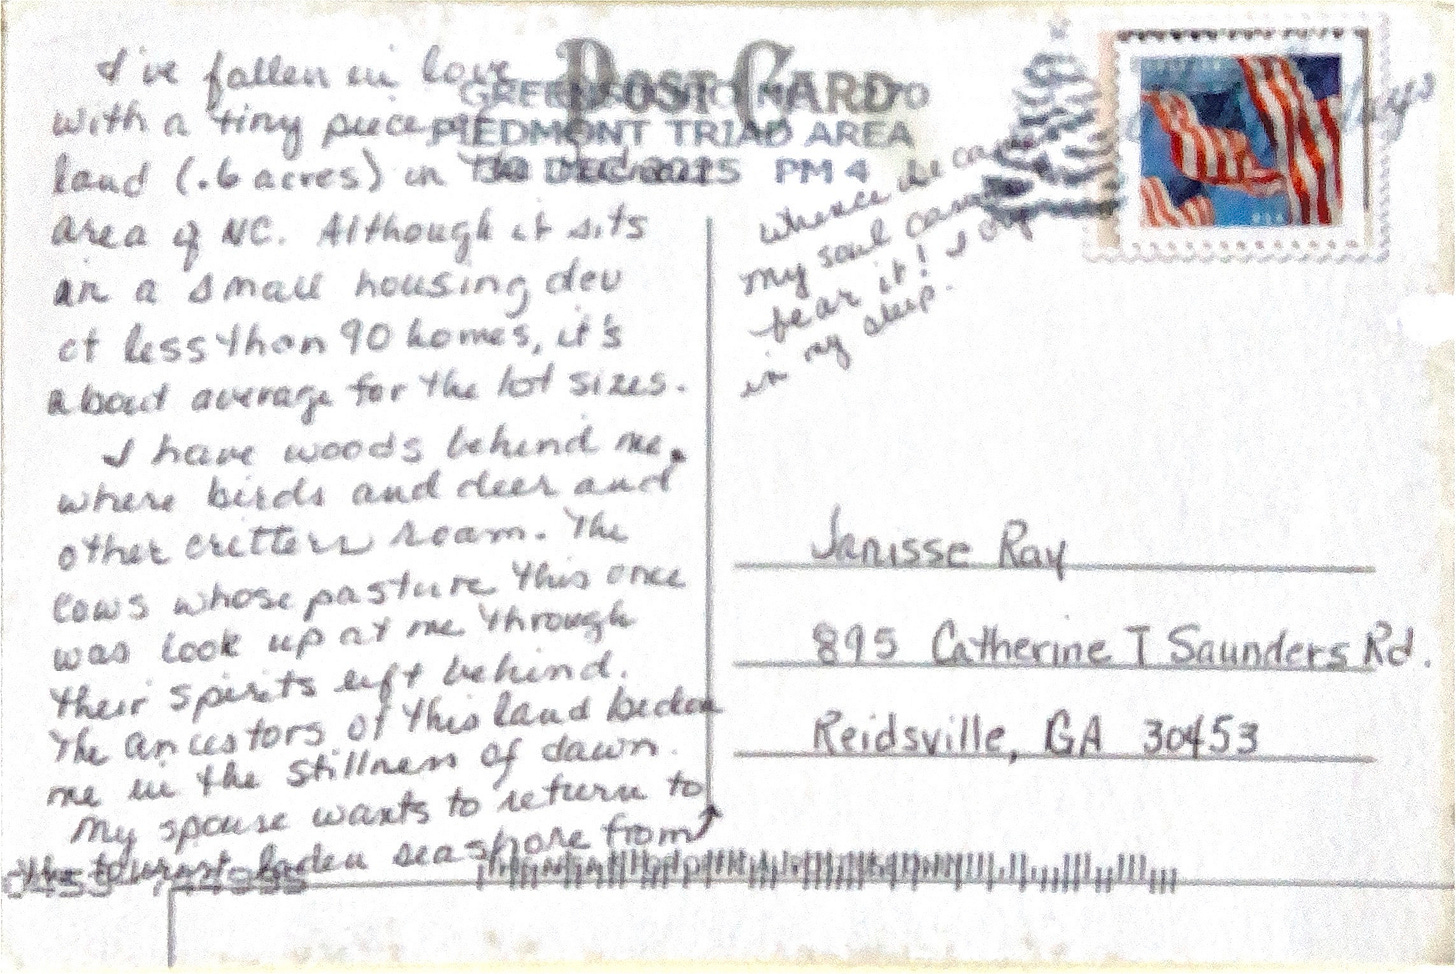 I've fallen in love
with a tiny piece of
land (.6 acres) in the
area of NC. Although it sits
in a small housing dev
of less than 90 homes, it's
about average for the lot sizes.
I have woods behind me,
where birds and deer and
other critters roam. The
cows whose pasture this once
was look up at me through
their spirits left behind.
The ancestors of this land beckon
me in the stillness of dawn.
My spouse wants to return to
the tourist laden seashore from
POST CARD
PIEDMONT TRIAD AREA
DEC 2025 PM 4
whence we
my soul
bear it! I
in my sleep.
USA
Janisse Ray
895 Catherine T Saunders Rd.
Reidsville, GA 30453